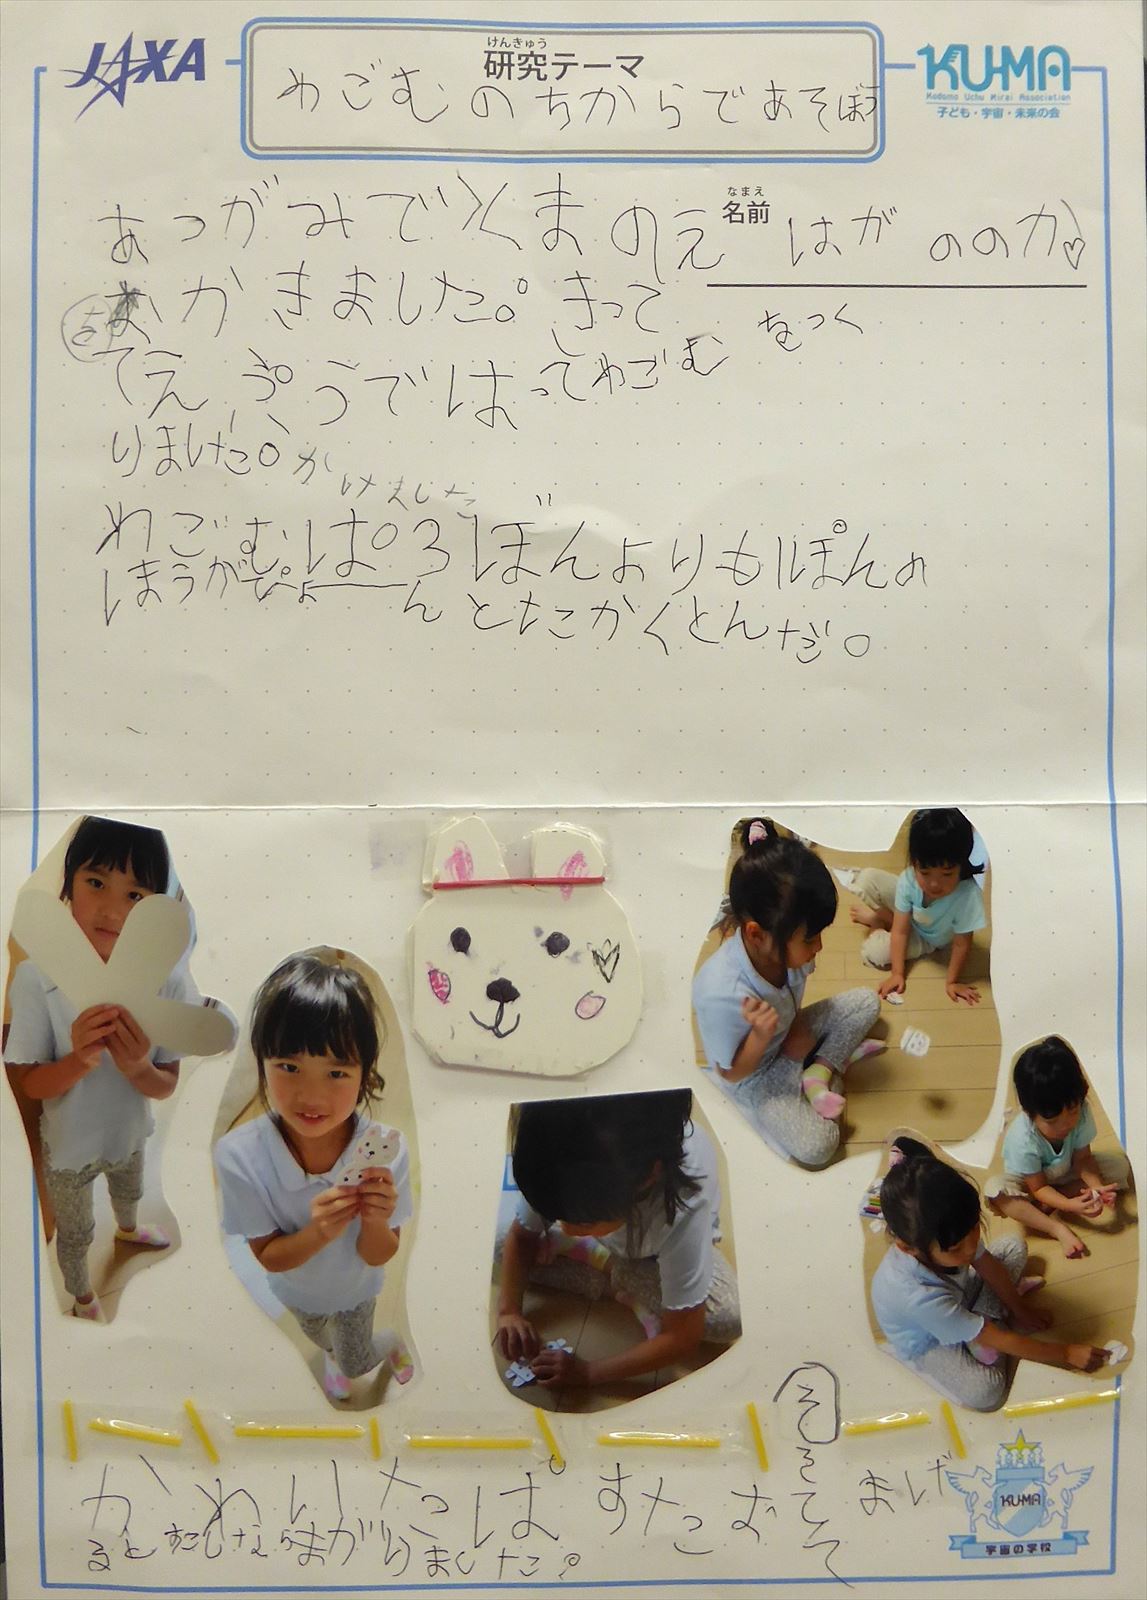 JAXA
けんきゅう
研究テーマ
KU-MA
Kodomo Uchu Mirai Association
子ども・宇宙・未来の会
わごむのちからであそぼう
なまえ
名前 はが ののか
あつがみでくまのえ
をかきました。きって
てえぷうではってわごむをつく
りました。かけました
わごむぱろぼんよりもぽんの
ほうがぴょーんとたかくとんだ。
かわいたぱすたおそてまげ
るとすこしならまがりました。
KU-MA
宇宙の学校